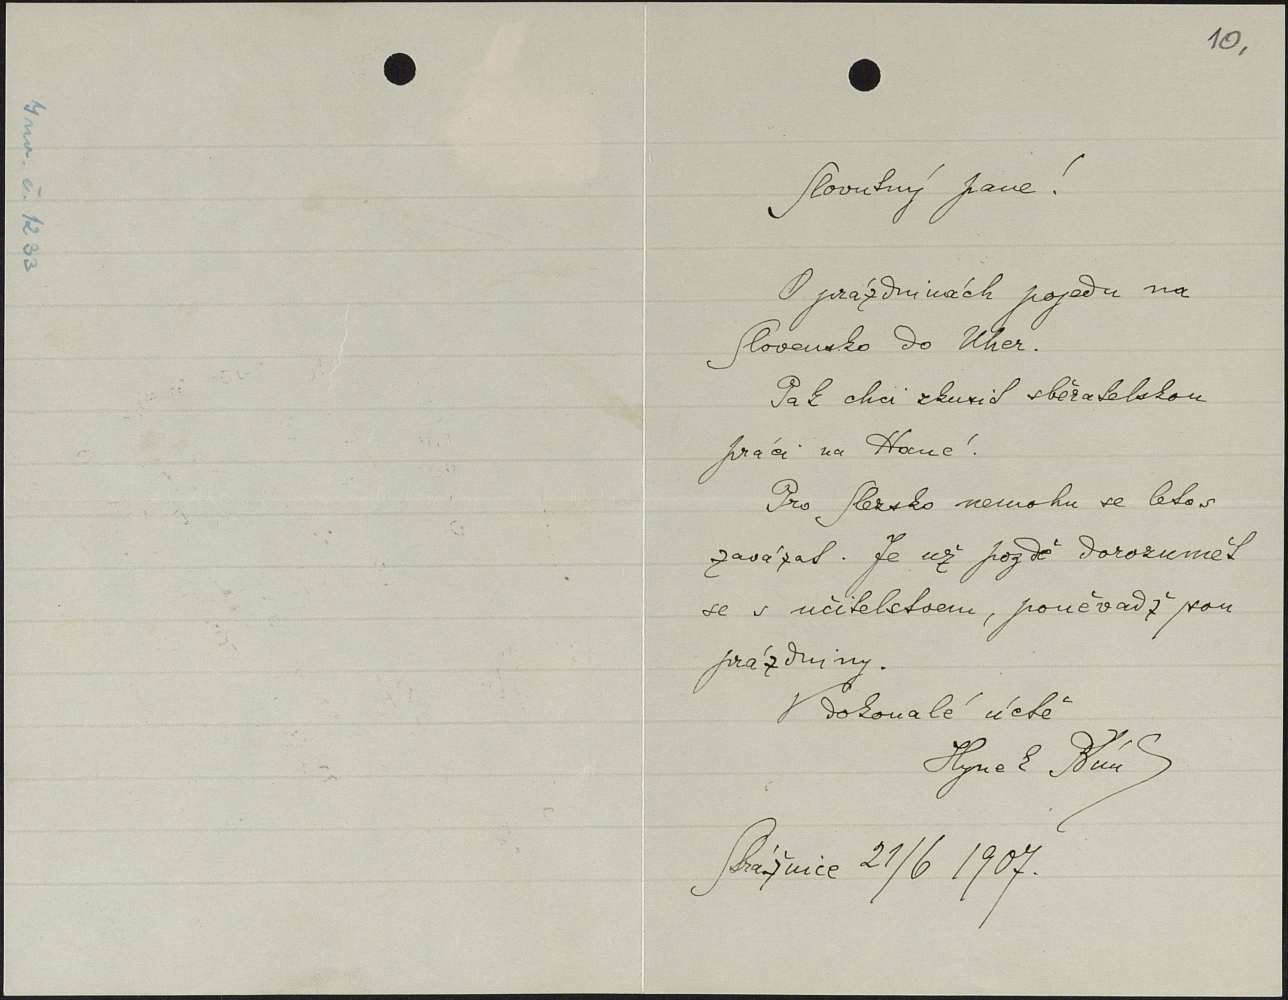 Inv. č. 1233
10,
Slovutný pane!
O prázdninách pojedu na
Slovensko do Uher.
Pak chci zkusit sběratelskou
práci na Hané.
Pro Slezsko nemohu se letos
zavázat. Je už pozdě dorozumět
se s učitelstvem, poněvadž jsou
prázdniny.
V dokonalé úctě
Hynek Bím
Strážnice 21/6 1907.